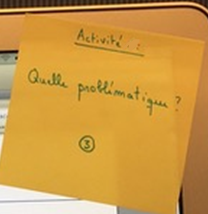 Activité :
Quelle problématique ?
3